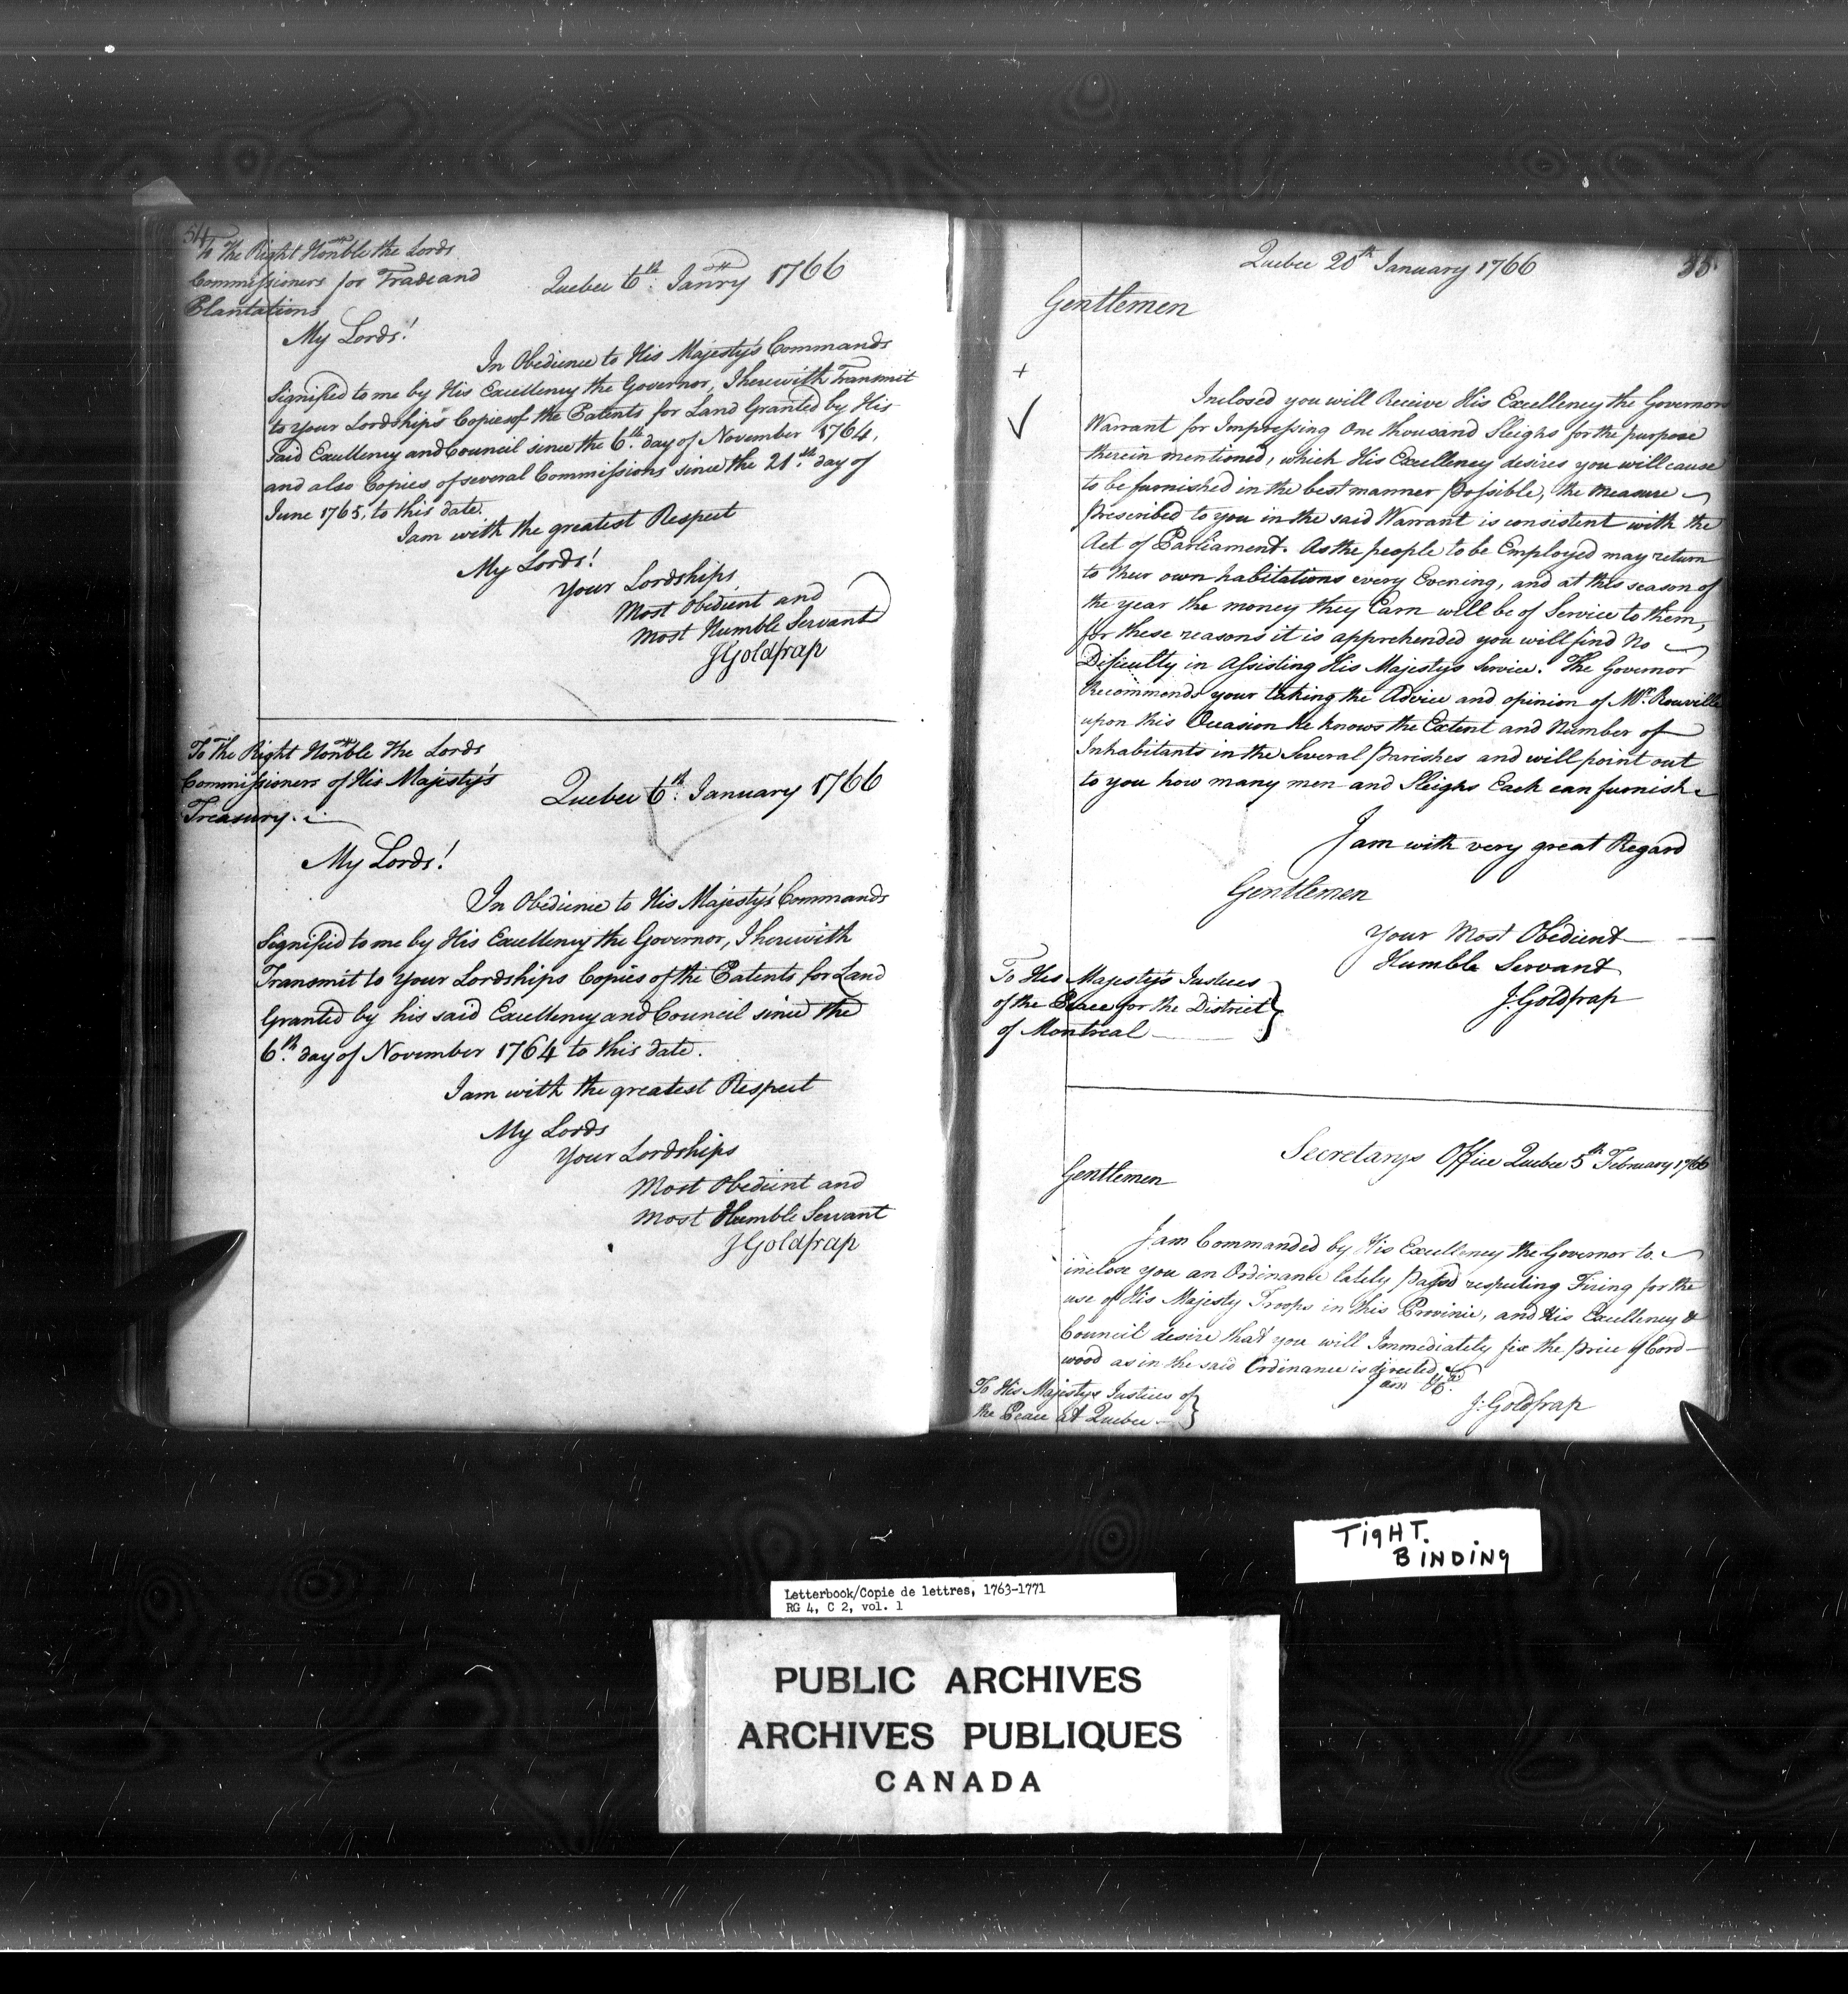 54
To The Right Honble the Lords
Commissioners for Trade and
Plantations
Quebec 6th. Janry 1766
My Lords!
In Obedience to His Majesty's Commands
Signified to me by His Excellency the Governor, I herewith Transmit
to Your Lordships Copies of the Patents for Land Granted by His
said Excellency and Council since the 6th. day of November 1764,
and also Copies of several Commissions since the 21st. day of
June 1765, to this date.
I am with the greatest Respect
My Lords!
Your Lordships
Most Obedient and
Most Humble Servant
JGoldfrap
To The Right Honble The Lords
Commissioners of His Majesty's
Treasury.
Quebec 6th. January 1766
My Lords!
In Obedience to His Majesty's Commands
Signified to me by His Excellency the Governor, I herewith
Transmit to Your Lordships Copies of the Patents for Land
Granted by his said Excellency and Council since the
6th. day of November 1764 to this date.
I am with the greatest Respect
My Lords
Your Lordships
Most Obedient and
Most Humble Servant
JGoldfrap
55
Quebec 20th January 1766
Gentlemen
+
Inclosed you will Receive His Excellency the Governors
Warrant for Impressing One thousand Sleighs for the purpose
therein mentioned, which His Excellency desires you will cause
to be furnished in the best manner possible, the measure
prescribed to you in the said Warrant is consistent with the
Act of Parliament. As the people to be Employed may return
to their own habitations every Evening, and at this season of
the year the money they Earn will be of Service to them,
for these reasons it is apprehended you will find no
Dificulty in Assisting His Majestys Service. The Governor
Recommends your taking the Advice and opinion of Mr. Rouville
upon this Occasion he knows the Extent and Number of
Inhabitants in the Several Parishes and will point out
to you how many men and Sleighs Each can furnish
I am with very great Regard
Gentlemen
Your Most Obedient
Humble Servant
J:Goldfrap
To His Majesty's Justices
of the Peace for the District
of Montreal
Secretarys Office Quebec 5th February 1766
Gentlemen
I am Commanded by His Excellency the Governor to
inclose you an Ordinance lately Passd respecting Firing for the
use of His Majesty Troops in this Province, and His Excellency &
Council desire that you will Immediately fix the price of Cord
wood as in the said Ordinance is directed
I am &ca.
J:Goldfrap
To His Majestys Justices of
the Peace at Quebec
TigHT.
BINDINg
Letterbook/Copie de lettres, 1763-1771
RG 4, C 2, vol. 1
PUBLIC ARCHIVES
ARCHIVES PUBLIQUES
CANADA